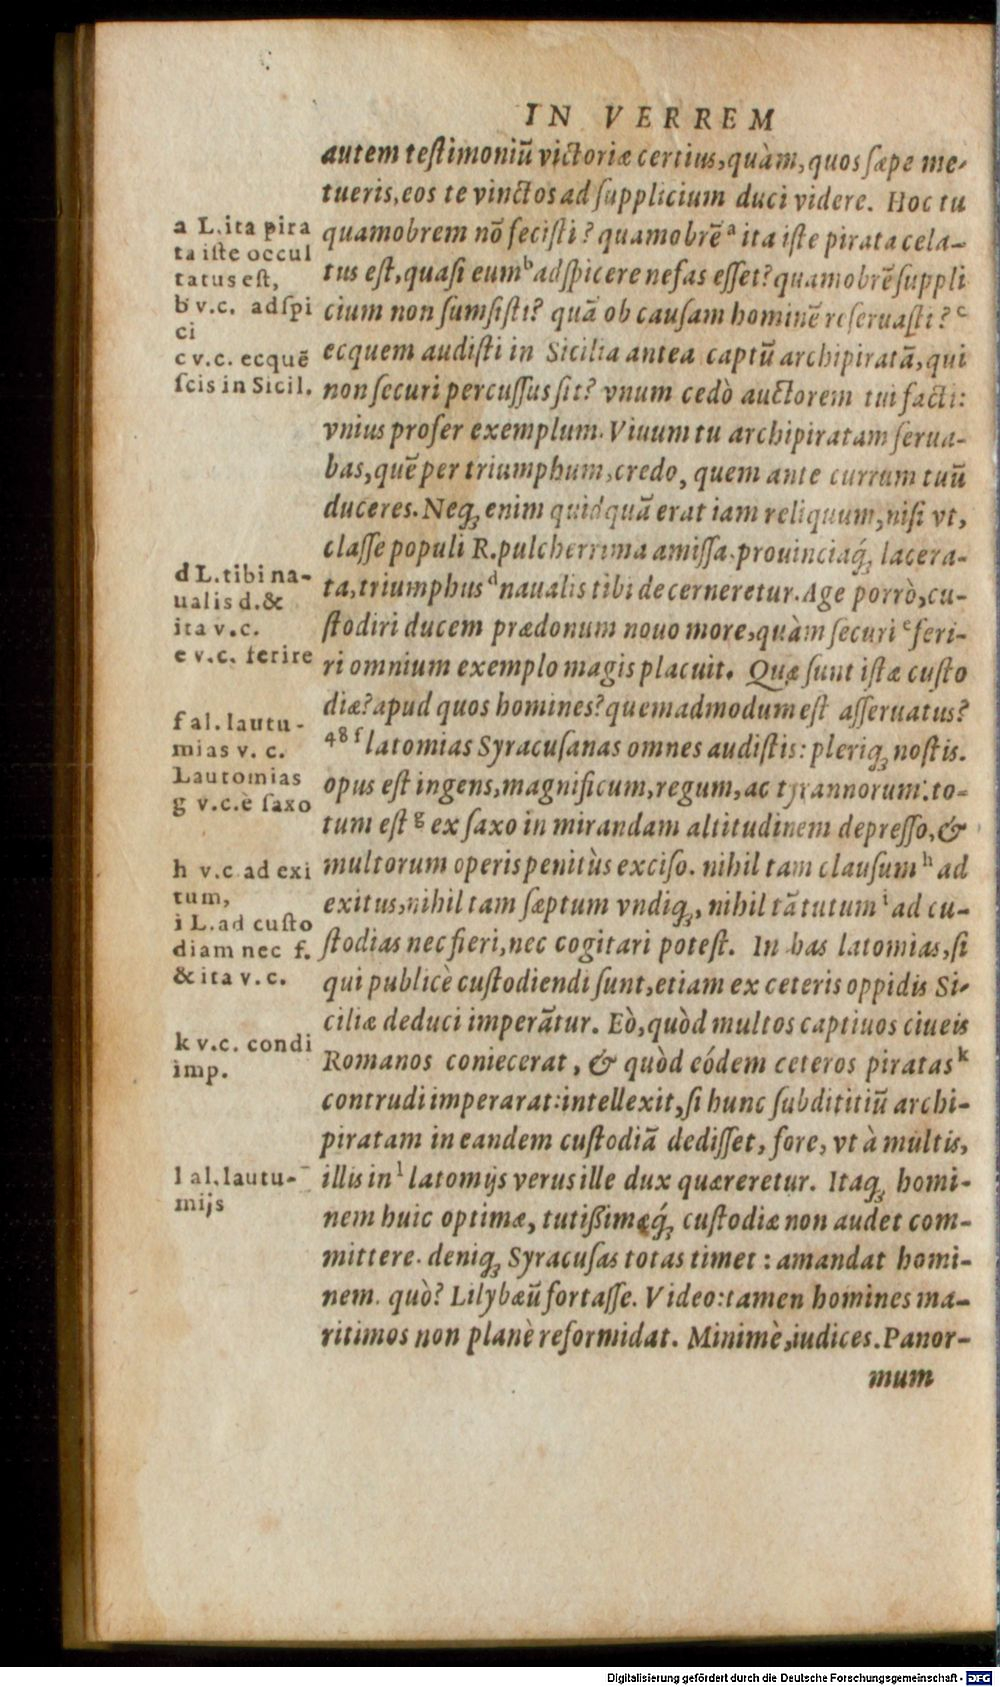 IN VERREM
autem teſtimoniū victoriæ certius, quàm, quos ſæpe me-
tueris, eos te vinctos ad ſupplicium duci videre. Hoc tu
quamobrem nō feciſti? quamobrē a ita iſte pirata cela-
tus eſt, quaſi eum b adſpicere nefas eſſet? quamobrē ſuppli
cium non ſumſiſti? quā ob cauſam hominē reſeruaſti? c
ecquem audiſti in Sicilia antea captū archipiratā, qui
non ſecuri percuſſus ſit? vnum cedò auctorem tui facti:
vnius profer exemplum. Viuum tu archipiratam ſerua-
bas, quē per triumphum, credo, quem ante currum tuū
duceres. Neq; enim quidquā erat iam reliquum, niſi vt,
claſſe populi R. pulcherrima amiſſa, prouinciaq́; lacera-
ta, triumphus d naualis tibi decerneretur. Age porrò, cu-
ſtodiri ducem prædonum nouo more, quàm ſecuri e feri-
ri omnium exemplo magis placuit. Quæ ſunt iſtæ cuſto
diæ? apud quos homines? quemadmodum eſt aſſeruatus?
48 f latomias Syracuſanas omnes audiſtis: pleriq; noſtis.
opus eſt ingens, magnificum, regum, ac tyrannorum: to-
tum eſt g ex ſaxo in mirandam altitudinem depreſſo, &
multorum operis penitùs exciſo. nihil tam clauſum h ad
exitus, nihil tam ſæptum vndiq;, nihil tā tutum i ad cu-
ſtodias nec fieri, nec cogitari poteſt. In has latomias, ſi
qui publicè cuſtodiendi ſunt, etiam ex ceteris oppidis Si-
ciliæ deduci imperātur. Eò, quòd multos captiuos ciueis
Romanos coniecerat, & quòd eódem ceteros piratas k
contrudi imperarat: intellexit, ſi hunc ſubdititiū archi-
piratam in eandem cuſtodiā dediſſet, fore, vt à multis,
illis in l latomijs verus ille dux quæreretur. Itaq; homi-
nem huic optimæ, tutißimæq́; cuſtodiæ non audet com-
mittere. deniq; Syracuſas totas timet: amandat homi-
nem. quò? Lilybæū fortaſſe. Video: tamen homines ma-
ritimos non planè reformidat. Minimè, iudices. Panor-
mum
a L. ita pira
ta iſte occul
tatus eſt,
b v.c. adſpi
ci
c v.c. ecquē
ſcis in Sicil.
d L. tibi na-
ualis d. &
ita v.c.
e v.c. ferire
f al. lautu-
mias v. c.
Lautomias
g v.c. è ſaxo
h v.c. ad exi
tum,
i L. ad cuſto
diam nec f.
& ita v.c.
k v.c. condi
imp.
l al. lautu-
mijs
Digitalisierung gefördert durch die Deutsche Forschungsgemeinschaft - DFG